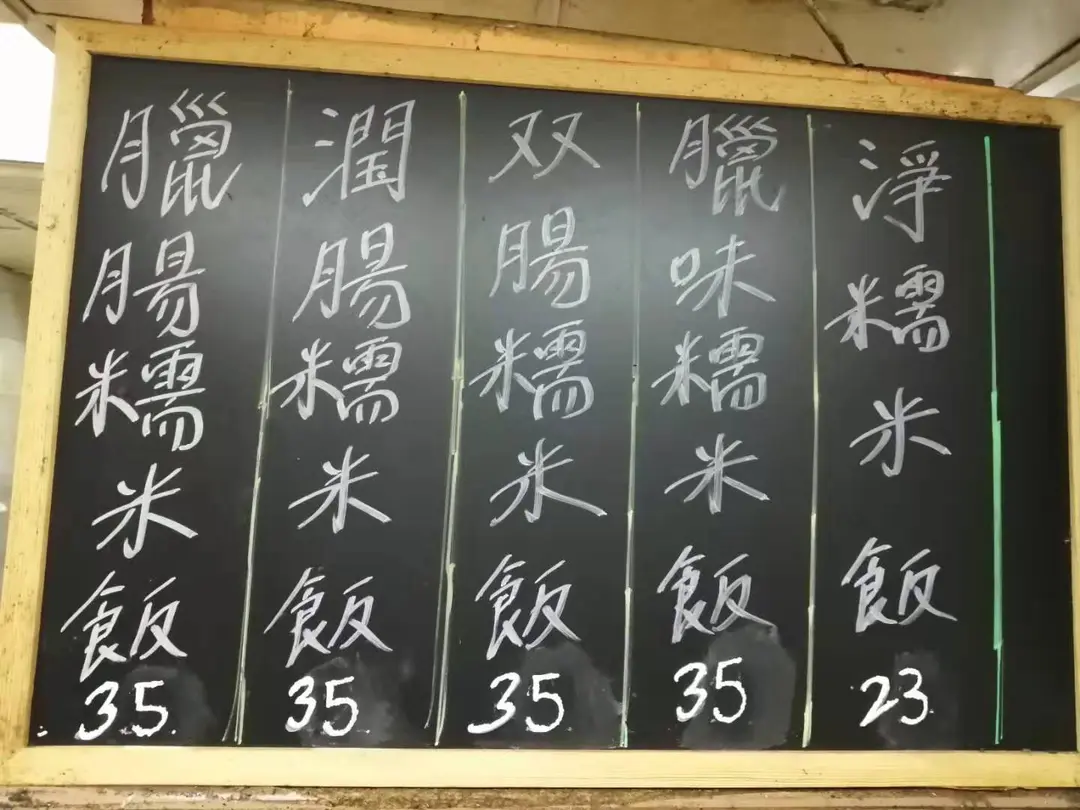 臘腸糯米飯 35
潤腸糯米飯 35
双腸糯米飯 35
臘味糯米飯 35
淨糯米飯 23